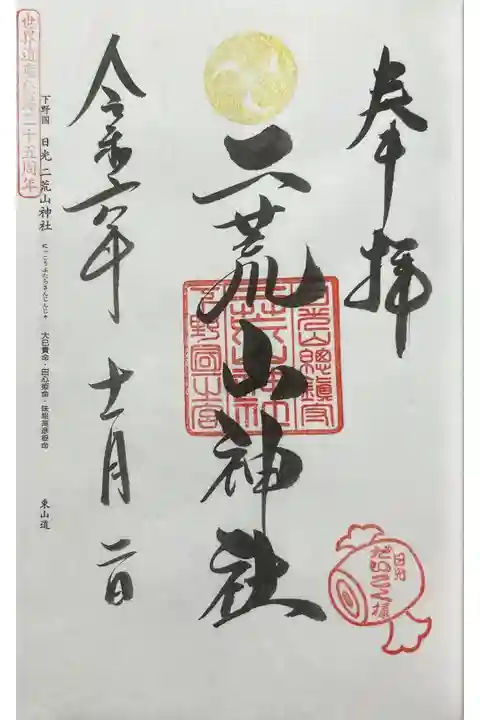 奉拝
二荒山神社
日光山總鎮守
二荒山神社
下野國一宮
日光
だいこく様
令和六年 十一月 二日
下野国 日光 二荒山神社 にっこうふたらさんじんじゃ 大己貴命・田心姫命・味耜高彦根命 東山道
世界遺産登録二十五周年